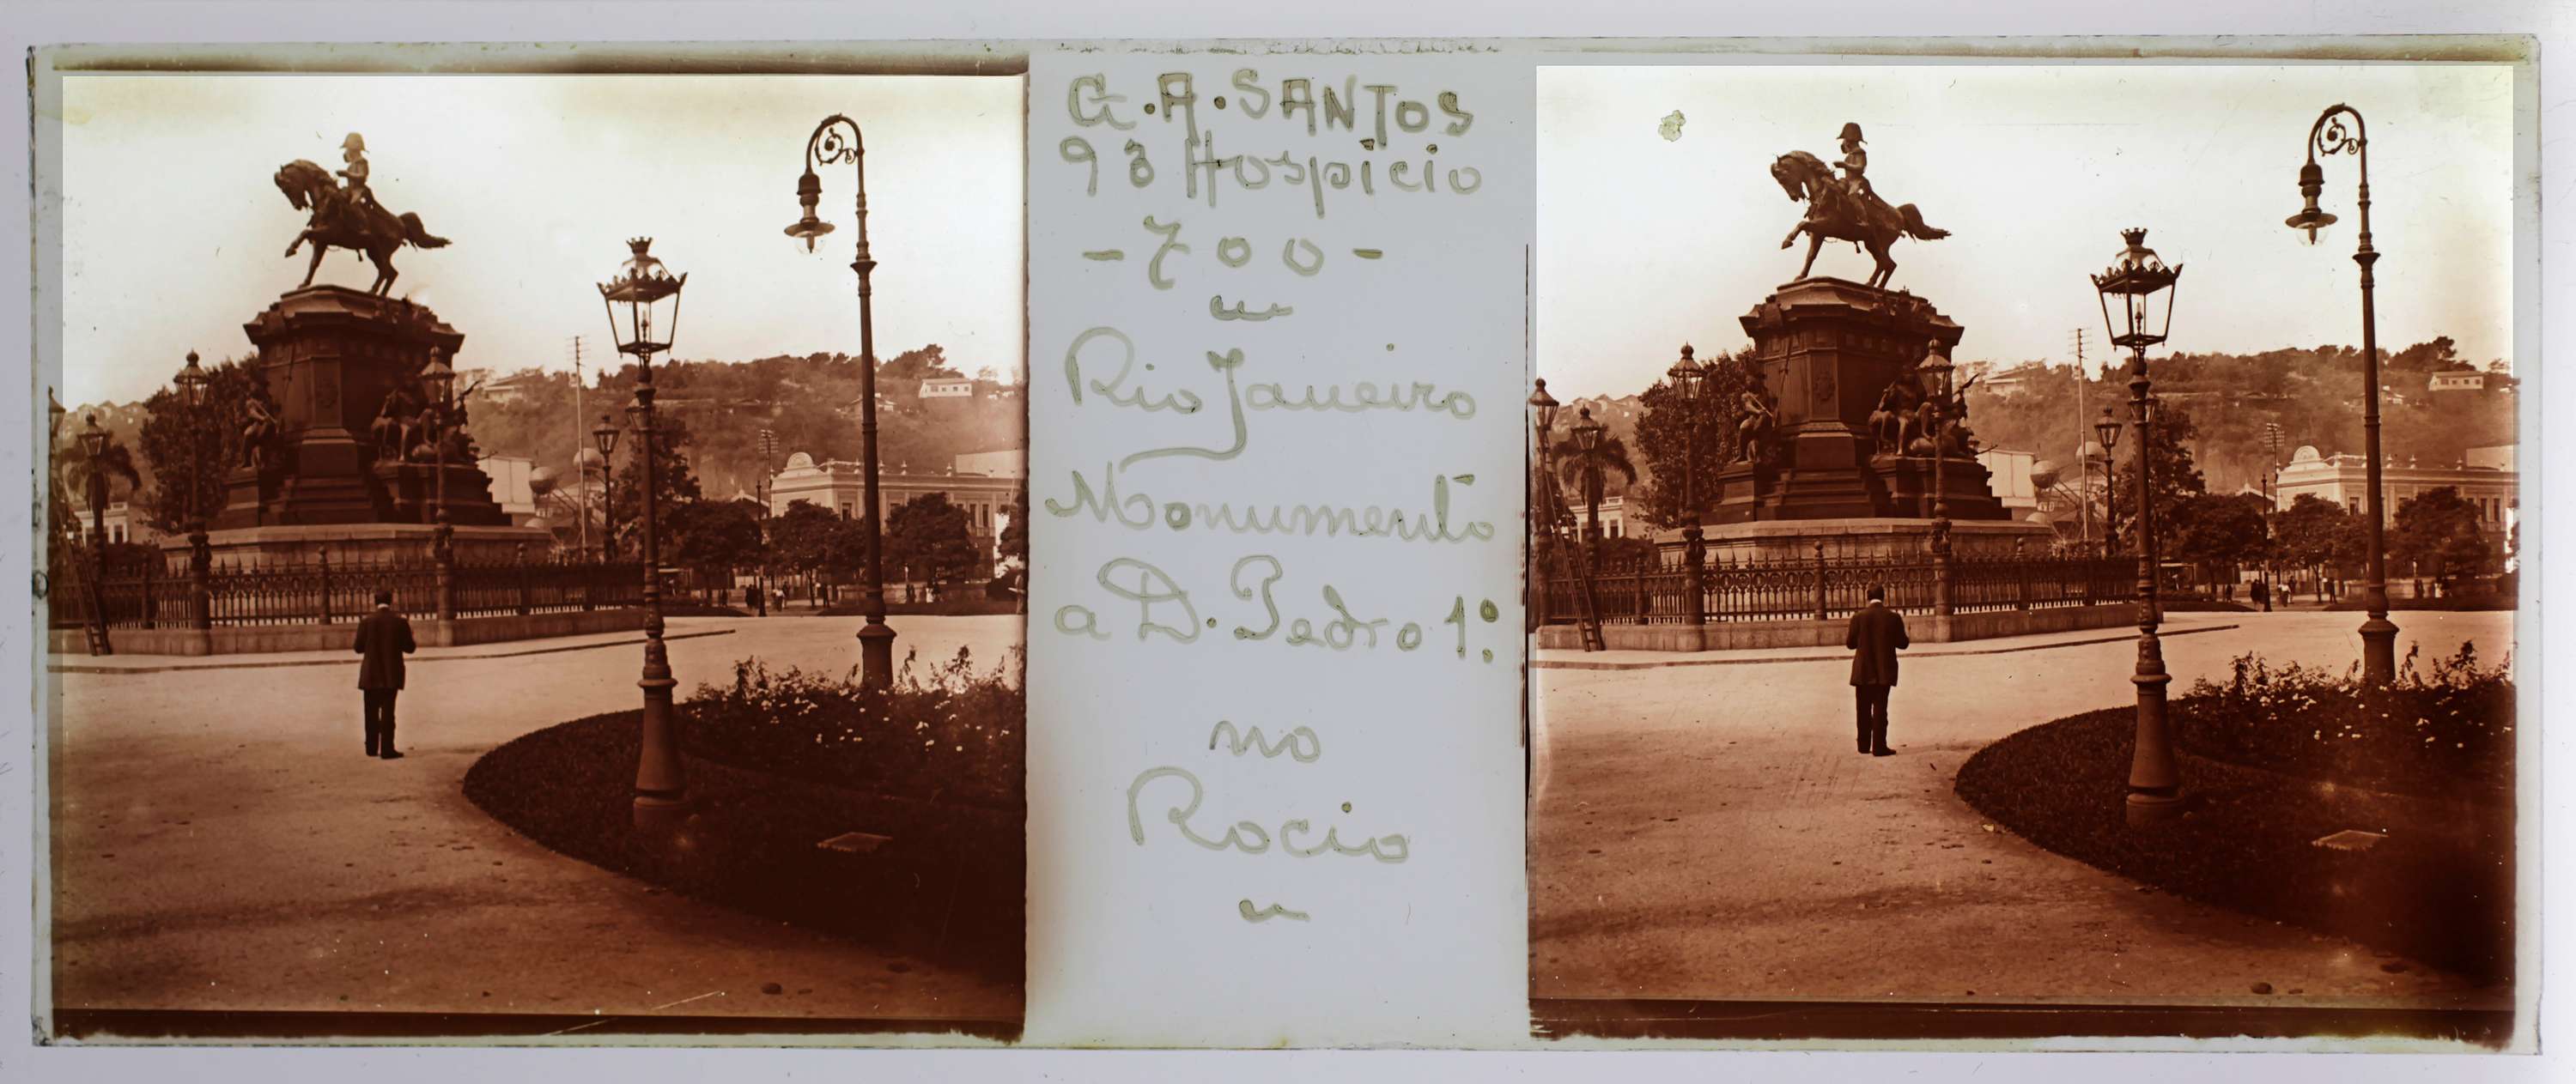 G.A.SANTOS
98 Hospicio
-700-
Rio Janeiro
Monumento
a D. Pedro 1º
no
Rocio